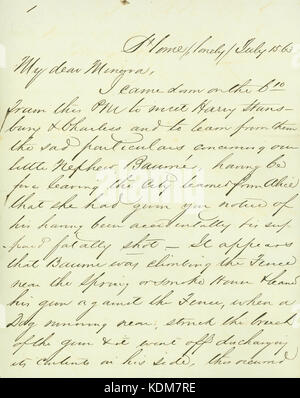 Home (lonely) July 1863
My dear Minyra,
I came down on the 6.00
train this PM to meet Harry Stans-
bury & Charless and to learn from them
the sad particulars concerning our
little Nephew Baume, having be
fore leaving the City learned from Alice
that she had given you notice of
his having been accidentally his sup
posed fatally shot — It appears
that Baume was climbing the Fence
near the Spring or smoke House & leaned
his gun against the Fence, when a
Dog running near, struck the breech
of the gun & it went off discharging
its contents in his side, this occurred
alamy
Image ID: KDM7RE
www.alamy.com